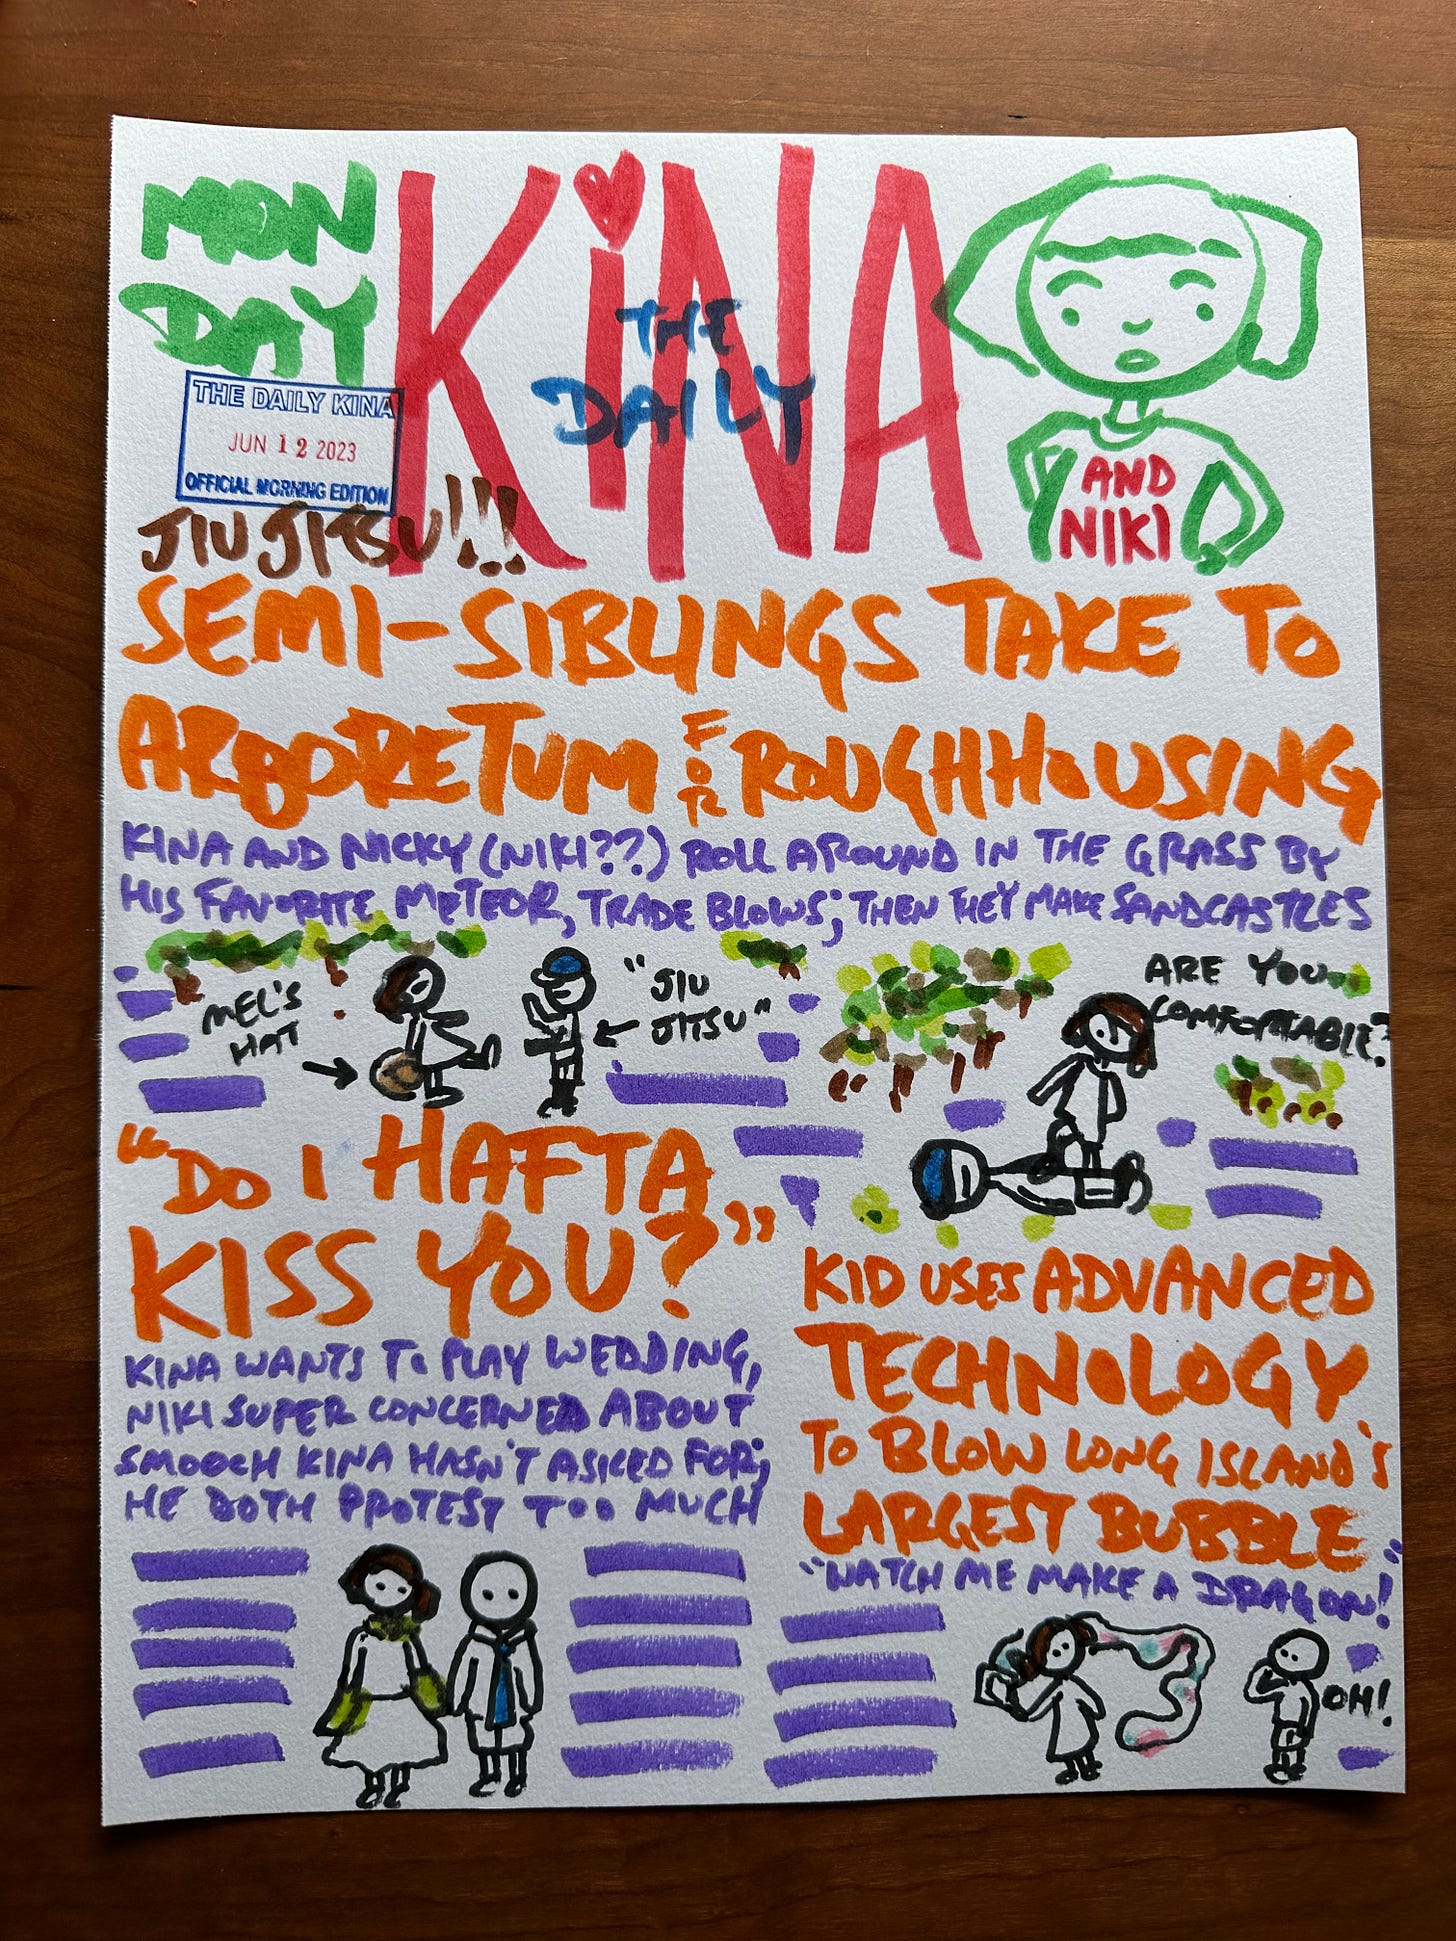 MON
DAY
KiNA
THE
DAILY
THE DAILY KINA
JUN 12 2023
OFFICIAL MORNING EDITION
AND
NIKI
JIU JITSU!!!
SEMI-SIBLINGS TAKE TO
ARBORETUM FOR ROUGHHOUSING
KINA AND NICKY (NIKI??) ROLL AROUND IN THE GRASS BY
HIS FAVORITE METEOR, TRADE BLOWS; THEN THEY MAKE SANDCASTLES
MEL'S
HAT
"JIU
JITSU"
ARE YOU
COMFORTABLE?
"DO I HAFTA
KISS YOU?"
KINA WANTS To PLAY WEDDING,
NIKI SUPER CONCERNED ABOUT
SMOOCH KINA HASN'T ASKED FOR;
HE DOTH PROTEST TOO MUCH
KID USES ADVANCED
TECHNOLOGY
TO BLOW LONG ISLAND'S
LARGEST BUBBLE
"WATCH ME MAKE A DRAGON!"
OH!